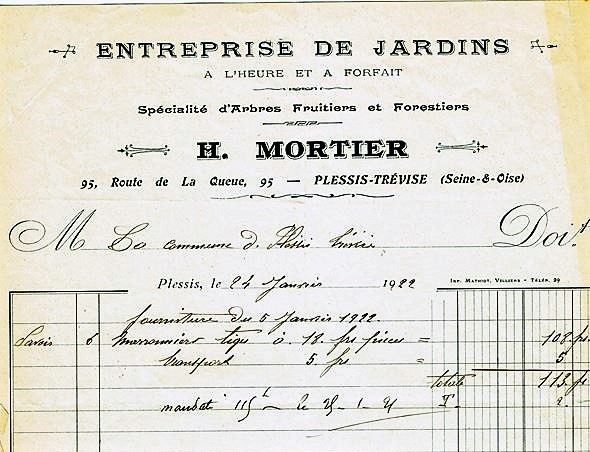 ENTREPRISE DE JARDINS
A L'HEURE ET A FORFAIT
Spécialité d'Arbres Fruitiers et Forestiers
H. MORTIER
95, Route de La Queue, 95 — PLESSIS-TRÉVISE (Seine-&-Oise)
M La commune d. Plessis Trévise Doit
Plessis, le 24 Janvier 1922
IMP. MATHIOT, VILLIERS - TÉLÉP. 29
fourniture du 5 Janvier 1922.
Savoir 6 marronniers tiges à 18 frs pièces = 108 frs
transport 5 frs = 5
totale 113 frs
mandaté 115 f le T. 2.